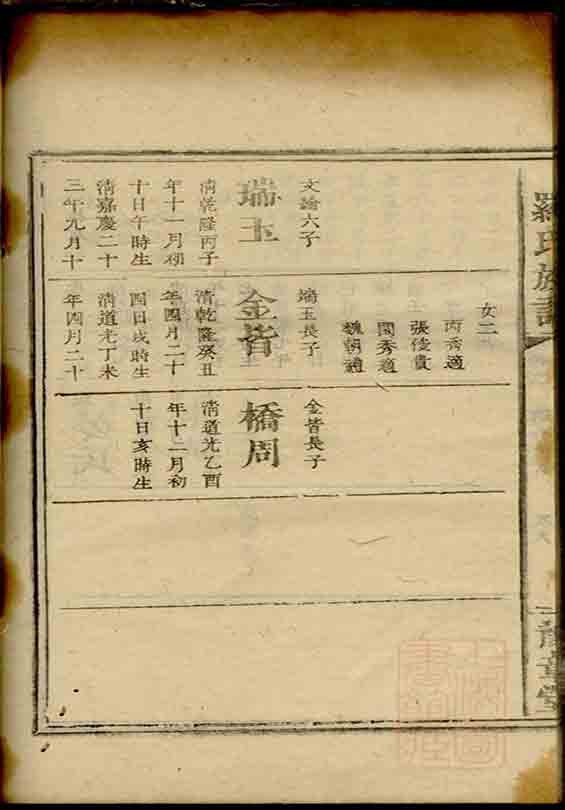 羅氏族譜
文論六子
瑞玉
清乾隆丙子
年十一月初
十日午時生
清嘉慶二十
三年九月十
女二
丙秀適
張俊貴
閏秀適
魏朝適
瑞玉長子
金皆
清乾隆癸丑
年四月二十
四日戌時生
清道光丁未
年四月二十
金皆長子
橋周
清道光乙酉
年十二月初
十日亥時生
章堂